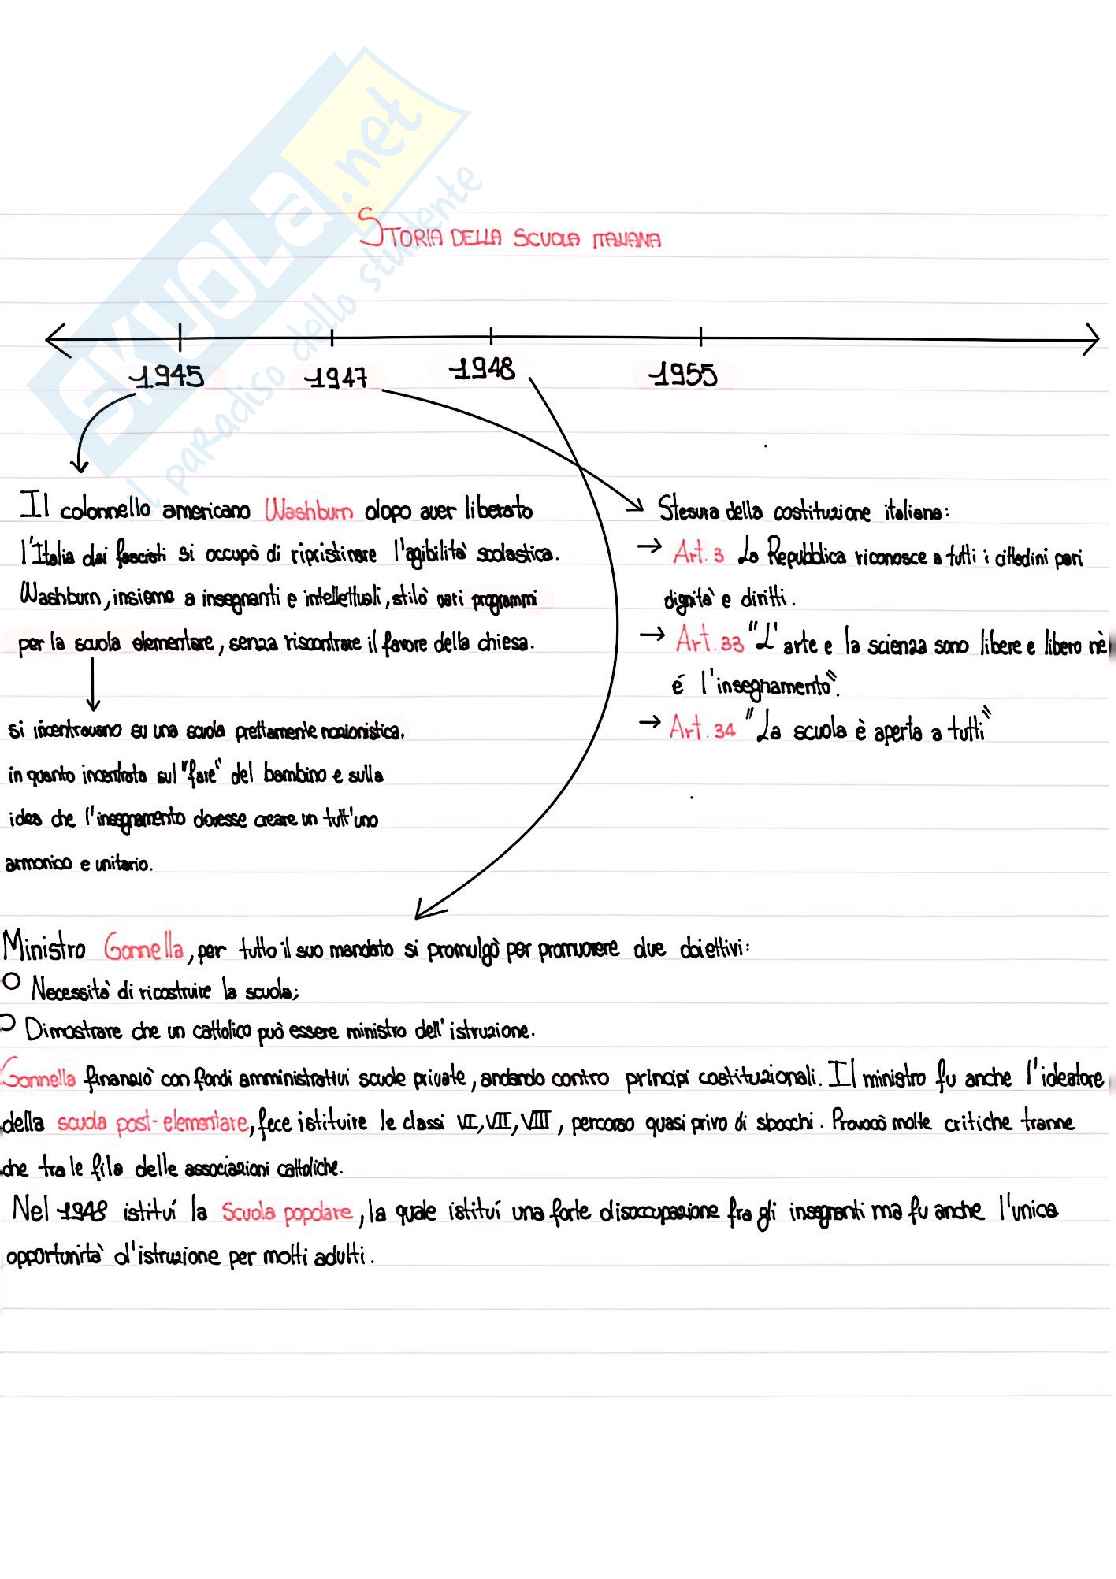 SKUOLA.net
il paradiso dello studente
STORIA DELLA SCUOLA ITALIANA
1945 1947 1948 1955
Il colonnello americano Washburn dopo aver liberato
l'Italia dai fascisti si occupò di ripristinare l'agibilità scolastica.
Washburn, insieme a insegnanti e intellettuali, stilò vari programmi
per la scuola elementare, senza riscontrare il favore della chiesa.
si incentravano su una scuola prettamente nozionistica.
in quanto incentrata sul "fare" del bambino e sulla
idea che l'insegnamento dovesse creare un tutt'uno
armonico e unitario.
Stesura della costituzione italiana:
→ Art. 3 La Repubblica riconosce a tutti i cittadini pari
dignità e diritti.
→ Art. 33 "L'arte e la scienza sono libere e libero n'è
é l'insegnamento".
→ Art. 34 "La scuola è aperta a tutti"
Ministro Gonnella, per tutto il suo mandato si promulgò per promuovere due obiettivi:
○ Necessità di ricostruire la scuola;
○ Dimostrare che un cattolico può essere ministro dell'istruzione.
Gonnella finanziò con fondi amministrativi scuole private, andando contro principi costituzionali. Il ministro fu anche l'ideatore
della scuola post-elementare, fece istituire le classi VI, VII, VIII, percorso quasi privo di sbocchi. Provocò molte critiche tranne
che tra le fila delle associazioni cattoliche.
Nel 1948 istituì la Scuola popolare, la quale istituì una forte disoccupazione fra gli insegnanti ma fu anche l'unica
opportunità d'istruzione per molti adulti.